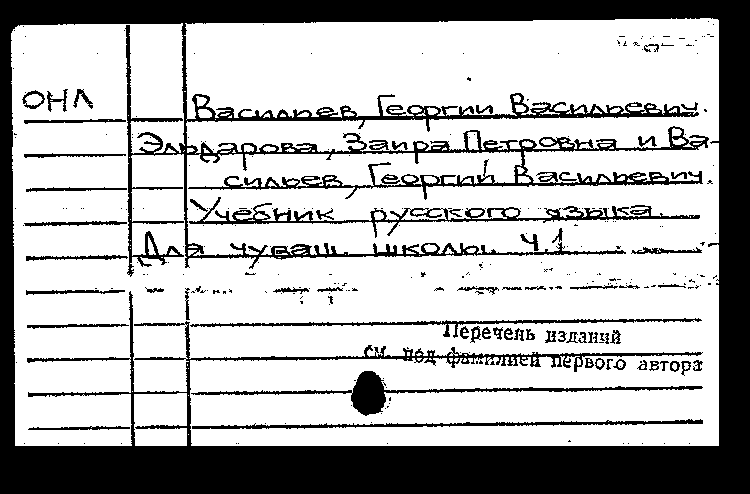 ОНЛ
Васильев, Георгий Васильевич.
Эльдарова, Заира Петровна и Ва-
сильев, Георгий Васильевич.
Учебник русского языка.
Для чуваш. школы. Ч.1
Перечень изданий
см. под фамилией первого автора